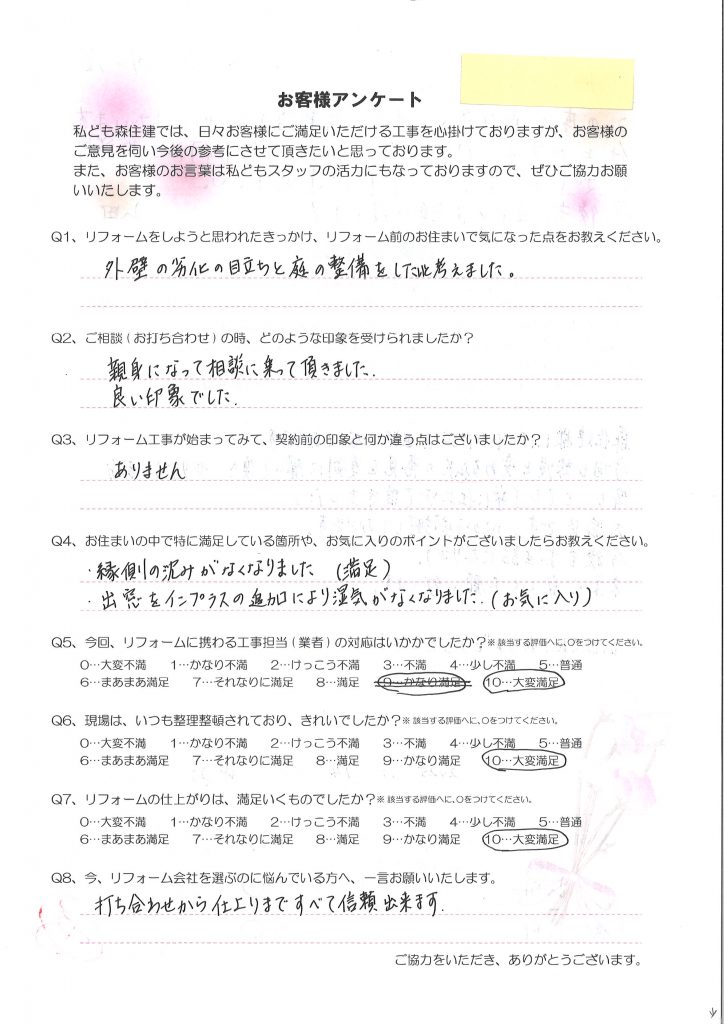 お客様アンケート
私ども森住建では、日々お客様にご満足いただける工事を心掛けておりますが、お客様の
ご意見を伺い今後の参考にさせて頂きたいと思っております。
また、お客様のお言葉は私どもスタッフの活力にもなっておりますので、ぜひご協力お願
いいたします。
Q1、リフォームをしようと思われたきっかけ、リフォーム前のお住まいで気になった点をお教えください。
外壁の劣化の目立ちと庭の整備をしたいと考えました。
Q2、ご相談(お打ち合わせ)の時、どのような印象を受けられましたか?
親身になって相談に乗って頂きました.
良い印象でした.
Q3、リフォーム工事が始まってみて、契約前の印象と何か違う点はございましたか?
ありません
Q4、お住まいの中で特に満足している箇所や、お気に入りのポイントがございましたらお教えください。
・縁側の沈みがなくなりました (満足)
・出窓をインプラスの追加により湿気がなくなりました.(お気に入り)
Q5、今回、リフォームに携わる工事担当(業者)の対応はいかかでしたか?※該当する評価へに、○をつけてください。
0…大変不満 1…かなり不満 2…けっこう不満 3…不満 4…少し不満 5…普通
6…まあまあ満足 7…それなりに満足 8…満足 9…かなり満足 10…大変満足
Q6、現場は、いつも整理整頓されており、きれいでしたか?※該当する評価へに、○をつけてください。
0…大変不満 1…かなり不満 2…けっこう不満 3…不満 4…少し不満 5…普通
6…まあまあ満足 7…それなりに満足 8…満足 9…かなり満足 10…大変満足
Q7、リフォームの仕上がりは、満足いくものでしたか?※該当する評価へに、○をつけてください。
0…大変不満 1…かなり不満 2…けっこう不満 3…不満 4…少し不満 5…普通
6…まあまあ満足 7…それなりに満足 8…満足 9…かなり満足 10…大変満足
Q8、今、リフォーム会社を選ぶのに悩んでいる方へ、一言お願いいたします。
打ち合わせから仕上りまですべて信頼出来ます.
ご協力をいただき、ありがとうございます。